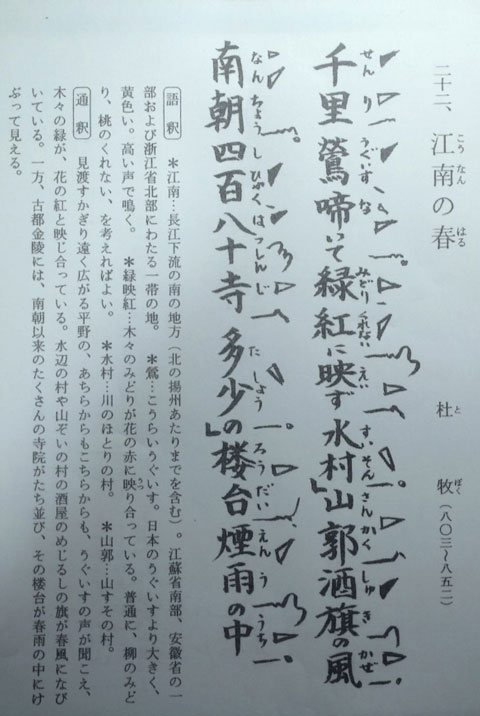 二十二、江南の春
こうなん はる
杜牧(八〇三〜八五二)
と ぼく
千里鶯啼いて緑紅に映ず水村」山郭酒旗の風
せんり うぐいす な みどりくれない えい すいそん さんかく しゅき かぜ
南朝四百八十寺多少の」楼台煙雨の中
なんちょう しひゃくはっしんじ たしょう ろうだい えんう うち
語釈 *江南…長江下流の南の地方(北の揚州あたりまでを含む)。江蘇省南部、安徽省の一
部および浙江省北部にわたる一帯の地。 *鶯…こうらいうぐいす。日本のうぐいすより大きく、
黄色い。高い声で鳴く。 *緑映紅…木々のみどりが花の赤に映り合っている。普通に、柳のみど
り、桃のくれない、を考えればよい。 *水村…川のほとりの村。 *山郭…山すその村。
通釈 見渡すかぎり遠く広がる平野の、あちらからもこちらからも、うぐいすの声が聞こえ、
木々の緑が、花の紅と映じ合っている。水辺の村や山ぞいの村の酒屋のめじるしの旗が春風になび
いている。一方、古都金陵には、南朝以来のたくさんの寺院がたち並び、その楼台が春雨の中にけ
ぶって見える。